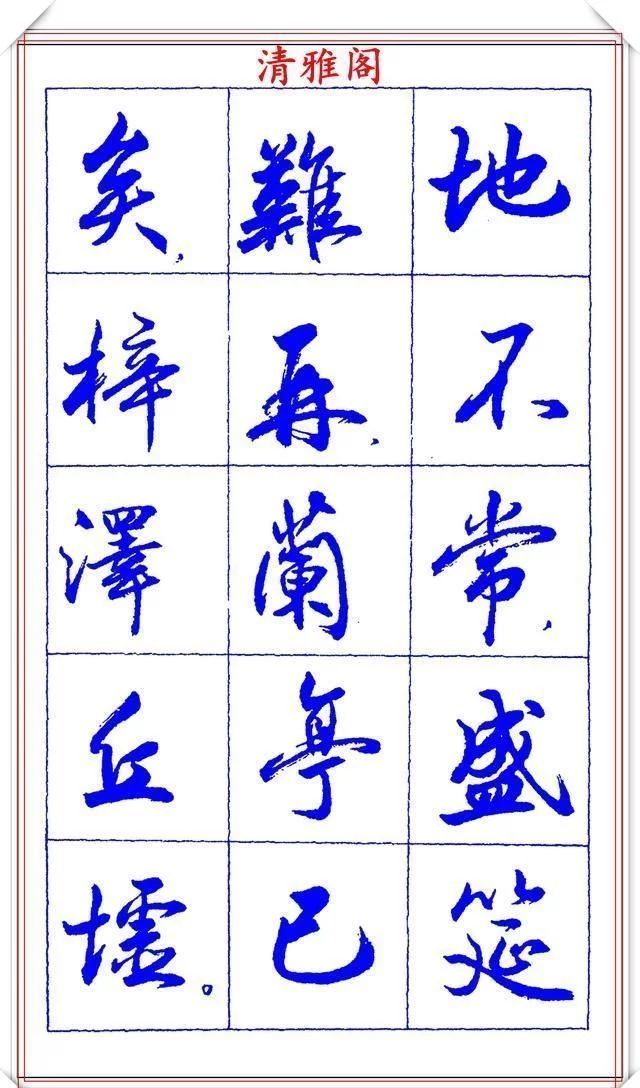 清雅阁
地不常,盛筵
難再,蘭亭已
矣,梓澤丘墟。